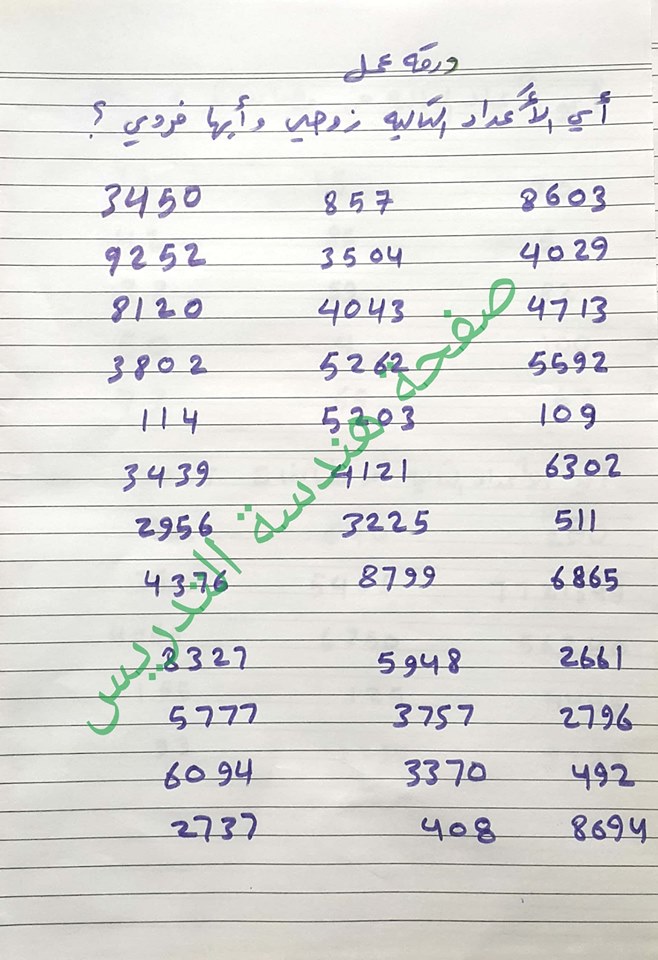 ورقة عمل
أي الأعداد التالية زوجي وأيها فردي ؟
3450 857 8603
9252 3504 4029
8120 4043 4713
3802 5262 5592
114 5203 109
3439 4121 6302
2956 3225 511
4376 8799 6865
8327 5948 2661
5777 3757 2796
6094 3370 492
2737 408 8694
صفحة هندسة التدريس